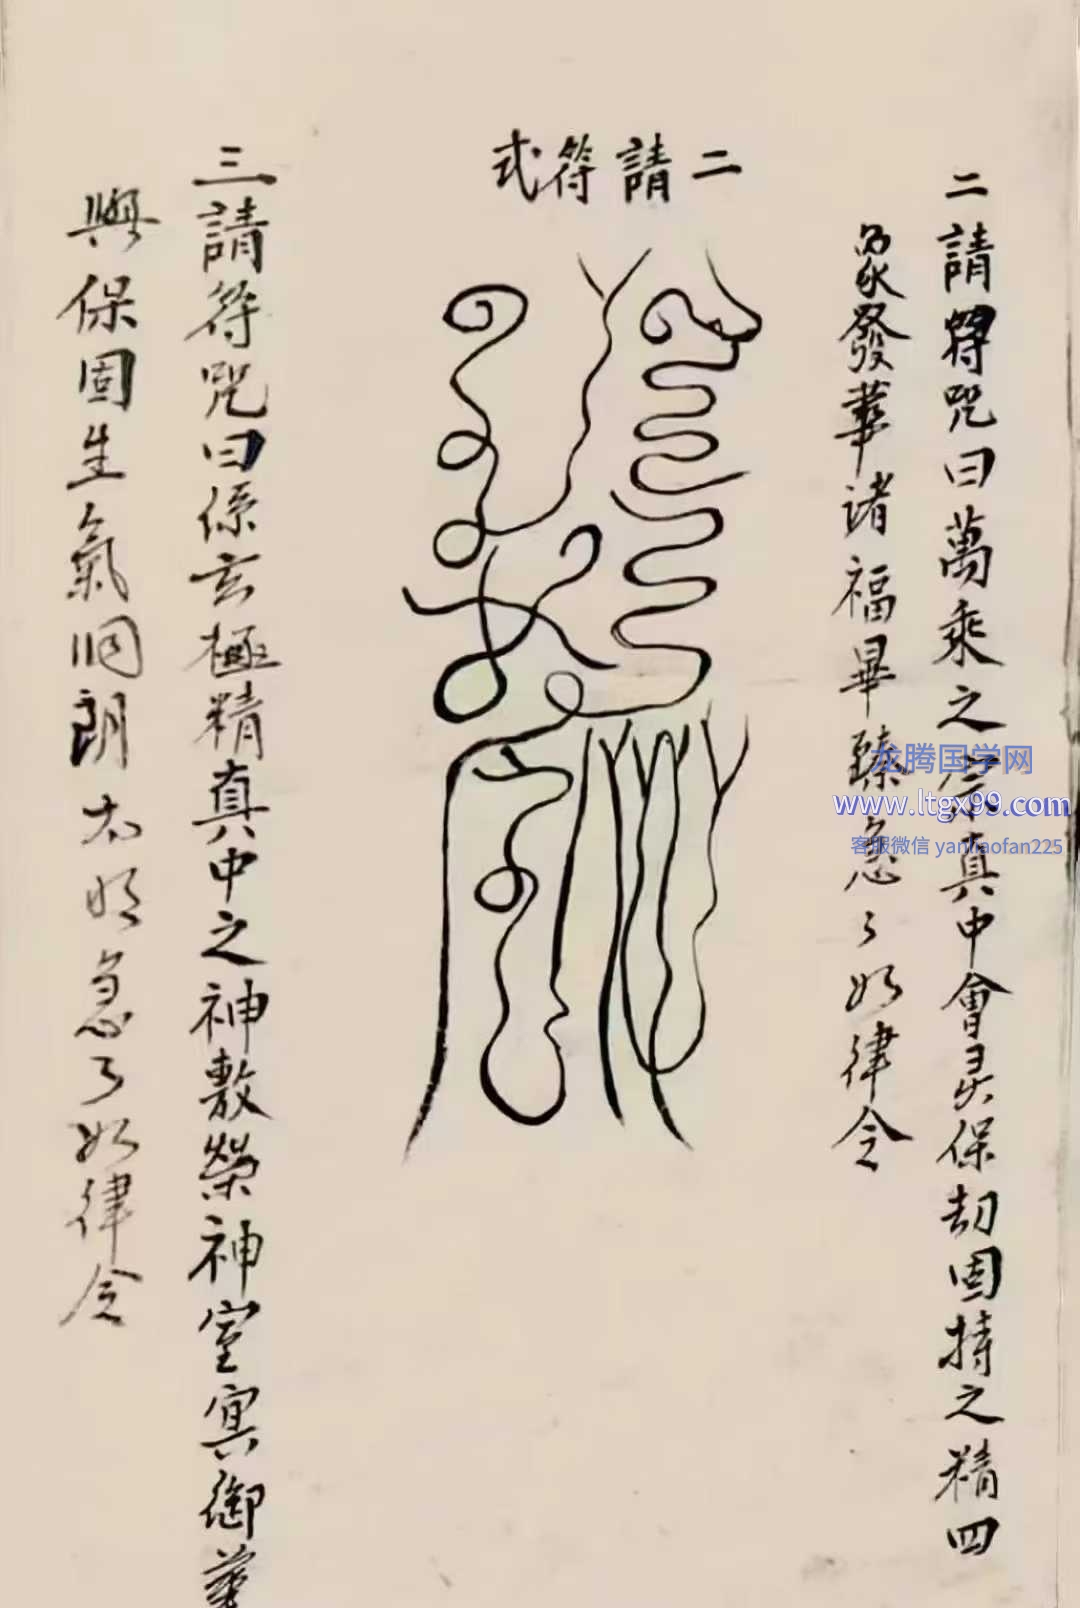 二請符咒曰萬乘之宗真中會灵保劫固持之精四
炁發華诸福畢臻急々如律令
二請符式
三請符咒曰係玄極精真中之神敷榮神室寘御華
與保固生氣洞朗太明急々如律令
龙腾国学网
www.ltgx99.com
客服微信 yanliaofan225